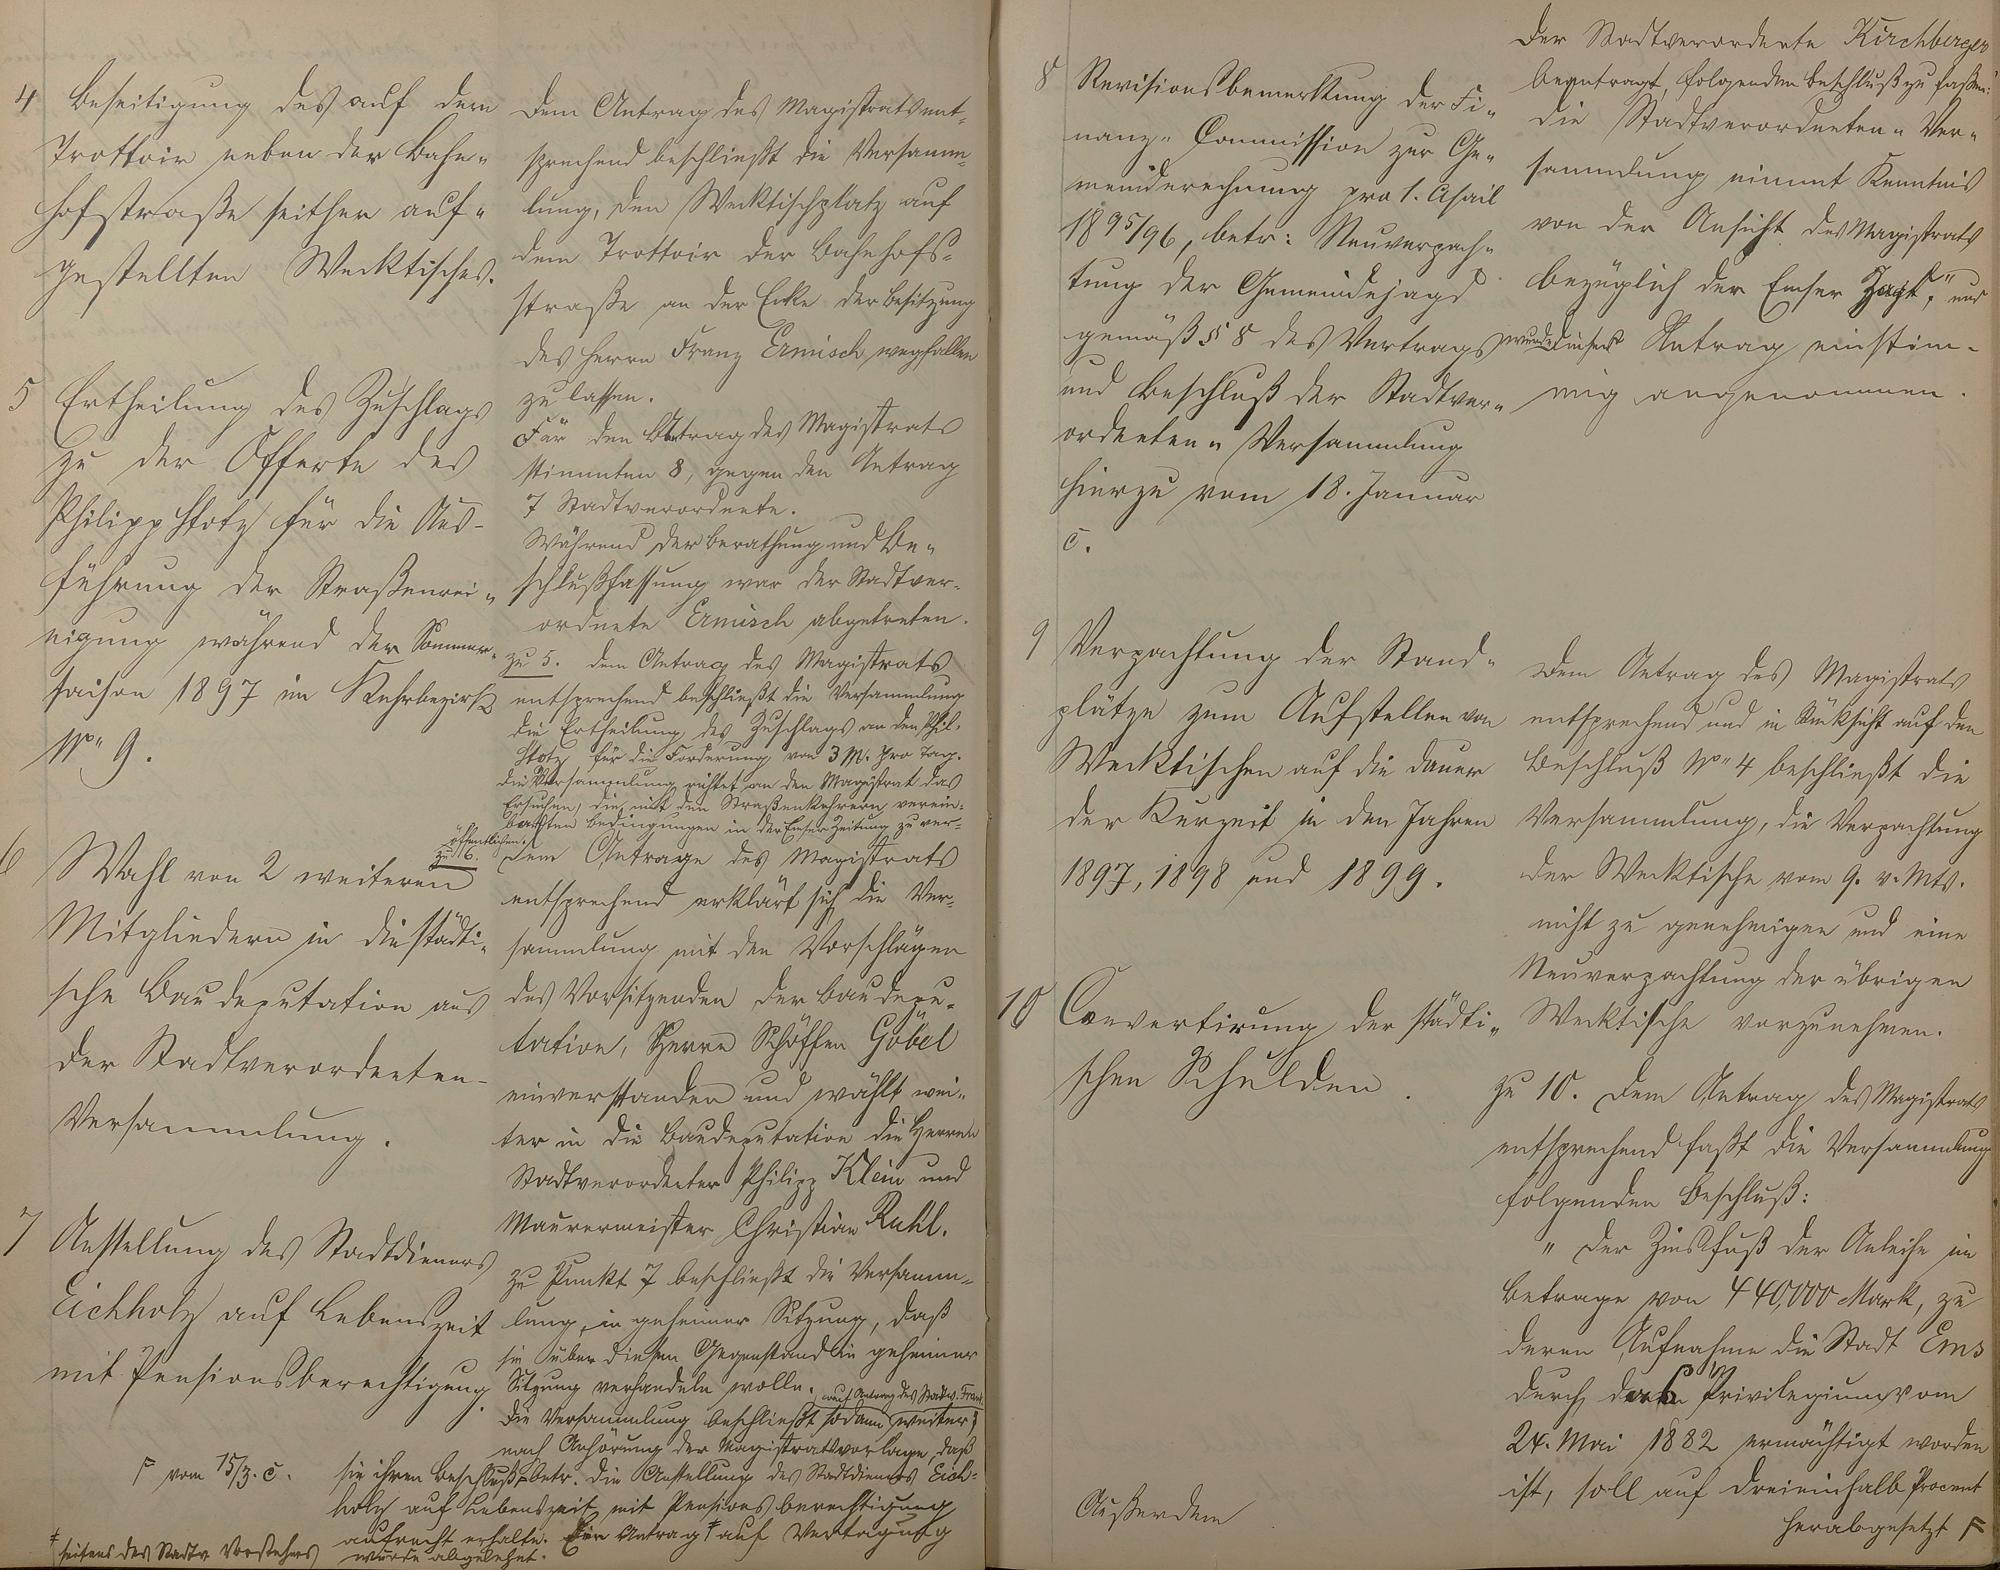 4 Beseitigung des auf dem
Trottoir neben der Bahn-
hofstraße seither auf-
gestellten Wecktisches.
Dem Antrag des Magistrats ent-
sprechend beschließt die Versamm-
lung, den Wecktischplatz auf
dem Trottoir der Bahnhofs-
straße an der Ecke der Besitzung
des Herrn Franz Ermisch wegfallen
zu lassen.
Für den Antrag des Magistrats
stimmten 8, gegen den Antrag
7 Stadtverordnete.
Während der Berathung und Be-
schlußfassung war der Stadtver-
ordnete Ermisch abgetreten.
5 Ertheilung des Zuschlags
zu der Offerte des
Philipp Stotz für die Aus-
führung der Straßenrei-
nigung während der Sommer-
saison 1897 im Kehrbezirk
No 9.
zu 5. dem Antrag des Magistrats
entsprechend beschließt die Versammlung
die Ertheilung des Zuschlags an den Phil.
Stotz für die Forderung von 3 M. pro Tag.
Die Versammlung richtet an den Magistrat das
Ersuchen, die mit den Straßenkehrern verein-
barten Bedingungen in der Emser Zeitung zu ver-
öffentlichen.
6 Wahl von 2 weiteren
Mitgliedern in die städti-
sche Baudeputation aus
der Stadtverordneten-
Versammlung.
zu 6. Dem Antrage des Magistrats
entsprechend erklärt sich die Ver-
sammlung mit den Vorschlägen
des Vorsitzenden der Baudepu-
tation, Herrn Schöffen Göbel
einverstanden und wählt wei-
ter in die Baudeputation die Herren
Stadtverordneter Philipp Klein und
Maurermeister Christian Ruhl.
7 Anstellung des Stadtdieners
Eichholz auf Lebenszeit
mit Pensionsberechtigung.
zu Punkt 7 beschließt die Versamm-
lung, in geheimer Sitzung, daß
sie über diesen Gegenstand in geheimer
Sitzung verhandeln wolle.
auf Antrag des Stadtv. Frank
Die Versammlung beschließt sodann weiter,
nach Anhörung der Magistratsvorlage, daß
sie ihren Beschluß betr. die Anstellung des Stadtdieners Eich-
holz auf Lebenszeit mit Pensionsberechtigung
aufrecht erhalte. Ein Antrag auf Vertagung
wurde abgelehnt.
vom 15/3. c.
seitens des Stadtv Vorstehers
8 Revisionsbemerkung der Fi-
nanz-Commission zur Ge-
meinderechnung pro 1. April
1895/96, betr: Neuverpach-
tung der Gemeindejagd
gemäß § 8 des Vertrags
und Beschluß der Stadtver-
ordneten-Versammlung
hierzu vom 18. Januar
c.
Der Stadtverordnete Kirchberger
beantragt, folgenden Beschluß zu faßen:
die Stadtverordneten-Ver-
sammlung nimmt Kenntnis
von der Ansicht des Magistrats
bezüglich der Emser Jagd," und
wurde dieser Antrag einstim-
mig angenommen.
9 Verpachtung der Stand-
plätze zum Aufstellen von
Wecktischen auf die Dauer
der Kurzeit in den Jahren
1897, 1898 und 1899.
Dem Antrag des Magistrats
entsprechend und in Rücksicht auf den
Beschluß No 4 beschließt die
Versammlung, die Verpachtung
der Wecktische vom 9. v. Mts.
nicht zu genehmigen und eine
Neuverpachtung der übrigen
Wecktische vorzunehmen.
10 Convertirung der städti-
schen Schulden.
zu 10. Dem Antrag des Magistrats
entsprechend faßt die Versammlung
folgenden Beschluß:
" Der Zinsfuß der Anleihe im
Betrage von 440,000 Mark, zu
deren Aufnahme die Stadt Ems
durch das Privilegium vom
24. Mai 1882 ermächtigt worden
ist, soll auf dreieinhalb Procent
herabgesetzt
Außerdem